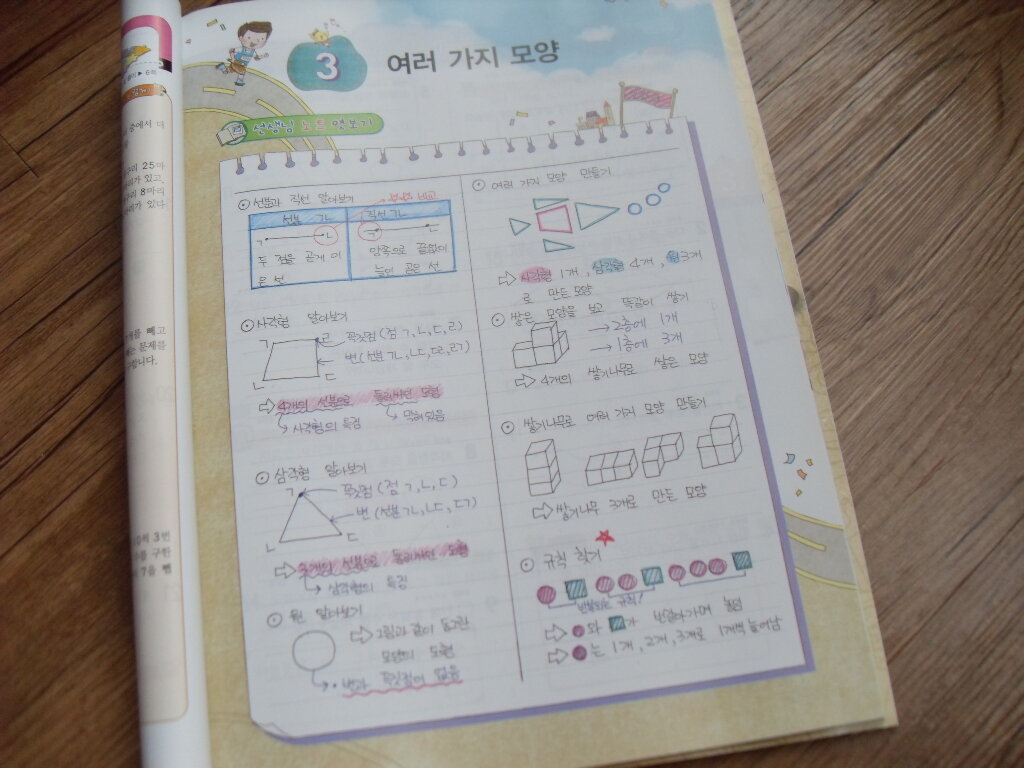 3
여러 가지 모양
선생님 노트 엿보기
선분과 직선 알아보기
선분 ㄱㄴ
직선 ㄱㄴ
두 점을 곧게 이
은 선
양쪽으로 끝없이
늘인 곧은 선
사각형 알아보기
ㄱ
ㄹ
ㄴ
ㄷ
꼭짓점 (점 ㄱ,ㄴ,ㄷ,ㄹ)
변 (선분 ㄱㄴ,ㄴㄷ,ㄷㄹ,ㄹㄱ)
4개의 선분으로 둘러싸인 도형
사각형의 특징
막혀있음
삼각형 알아보기
ㄱ
ㄴ
ㄷ
꼭짓점 (점 ㄱ,ㄴ,ㄷ)
변 (선분 ㄱㄴ,ㄴㄷ,ㄷㄱ)
3개의 선분으로 둘러싸인 도형
삼각형의 특징
원 알아보기
그림과 같이 동그란
모양의 도형
변과 꼭짓점이 없음
여러 가지 모양 만들기
사각형 1개, 삼각형 4개, 원 3개
로 만든 모양
쌓은 모양을 보고 똑같이 쌓기
2층에 1개
1층에 3개
4개의 쌓기나무로 쌓은 모양
쌓기나무로 여러 가지 모양 만들기
쌓기나무 3개로 만든 모양
규칙 찾기
반복되는 규칙!
와 가 번갈아가며 놓임
는 1개, 2개, 3개로 1개씩 늘어남